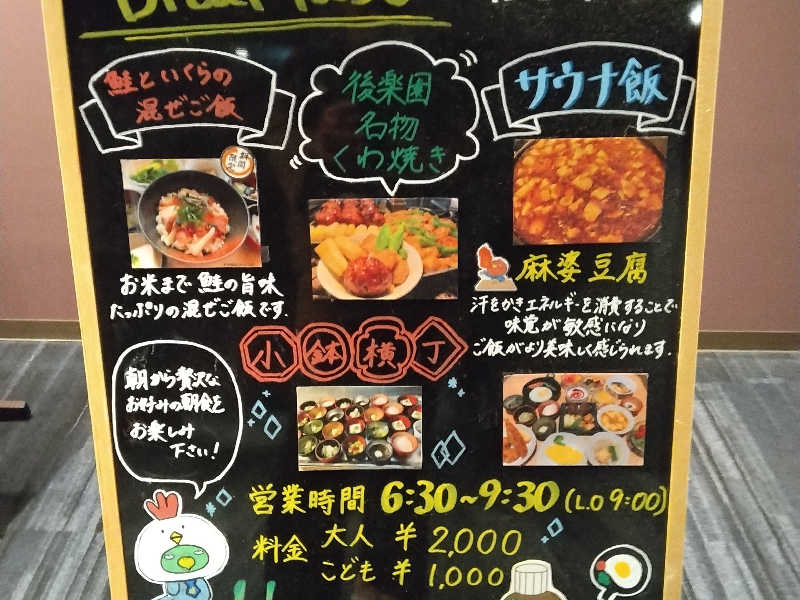 鮭といくらの
混ぜご飯
お米まで鮭の旨味
たっぷりの混ぜご飯です.
後楽園
名物
くわ焼き
サウナ飯
麻婆豆腐
汗をかきエネルギーを消費することで
味覚が敏感になり
ご飯がより美味しく感じられます.
小鉢横丁
朝から贅沢な
お好みの朝食を
お楽しみ
下さい!
営業時間 6:30~9:30(L.O 9:00)
料金 大人 ¥2,000
こども ¥1,000